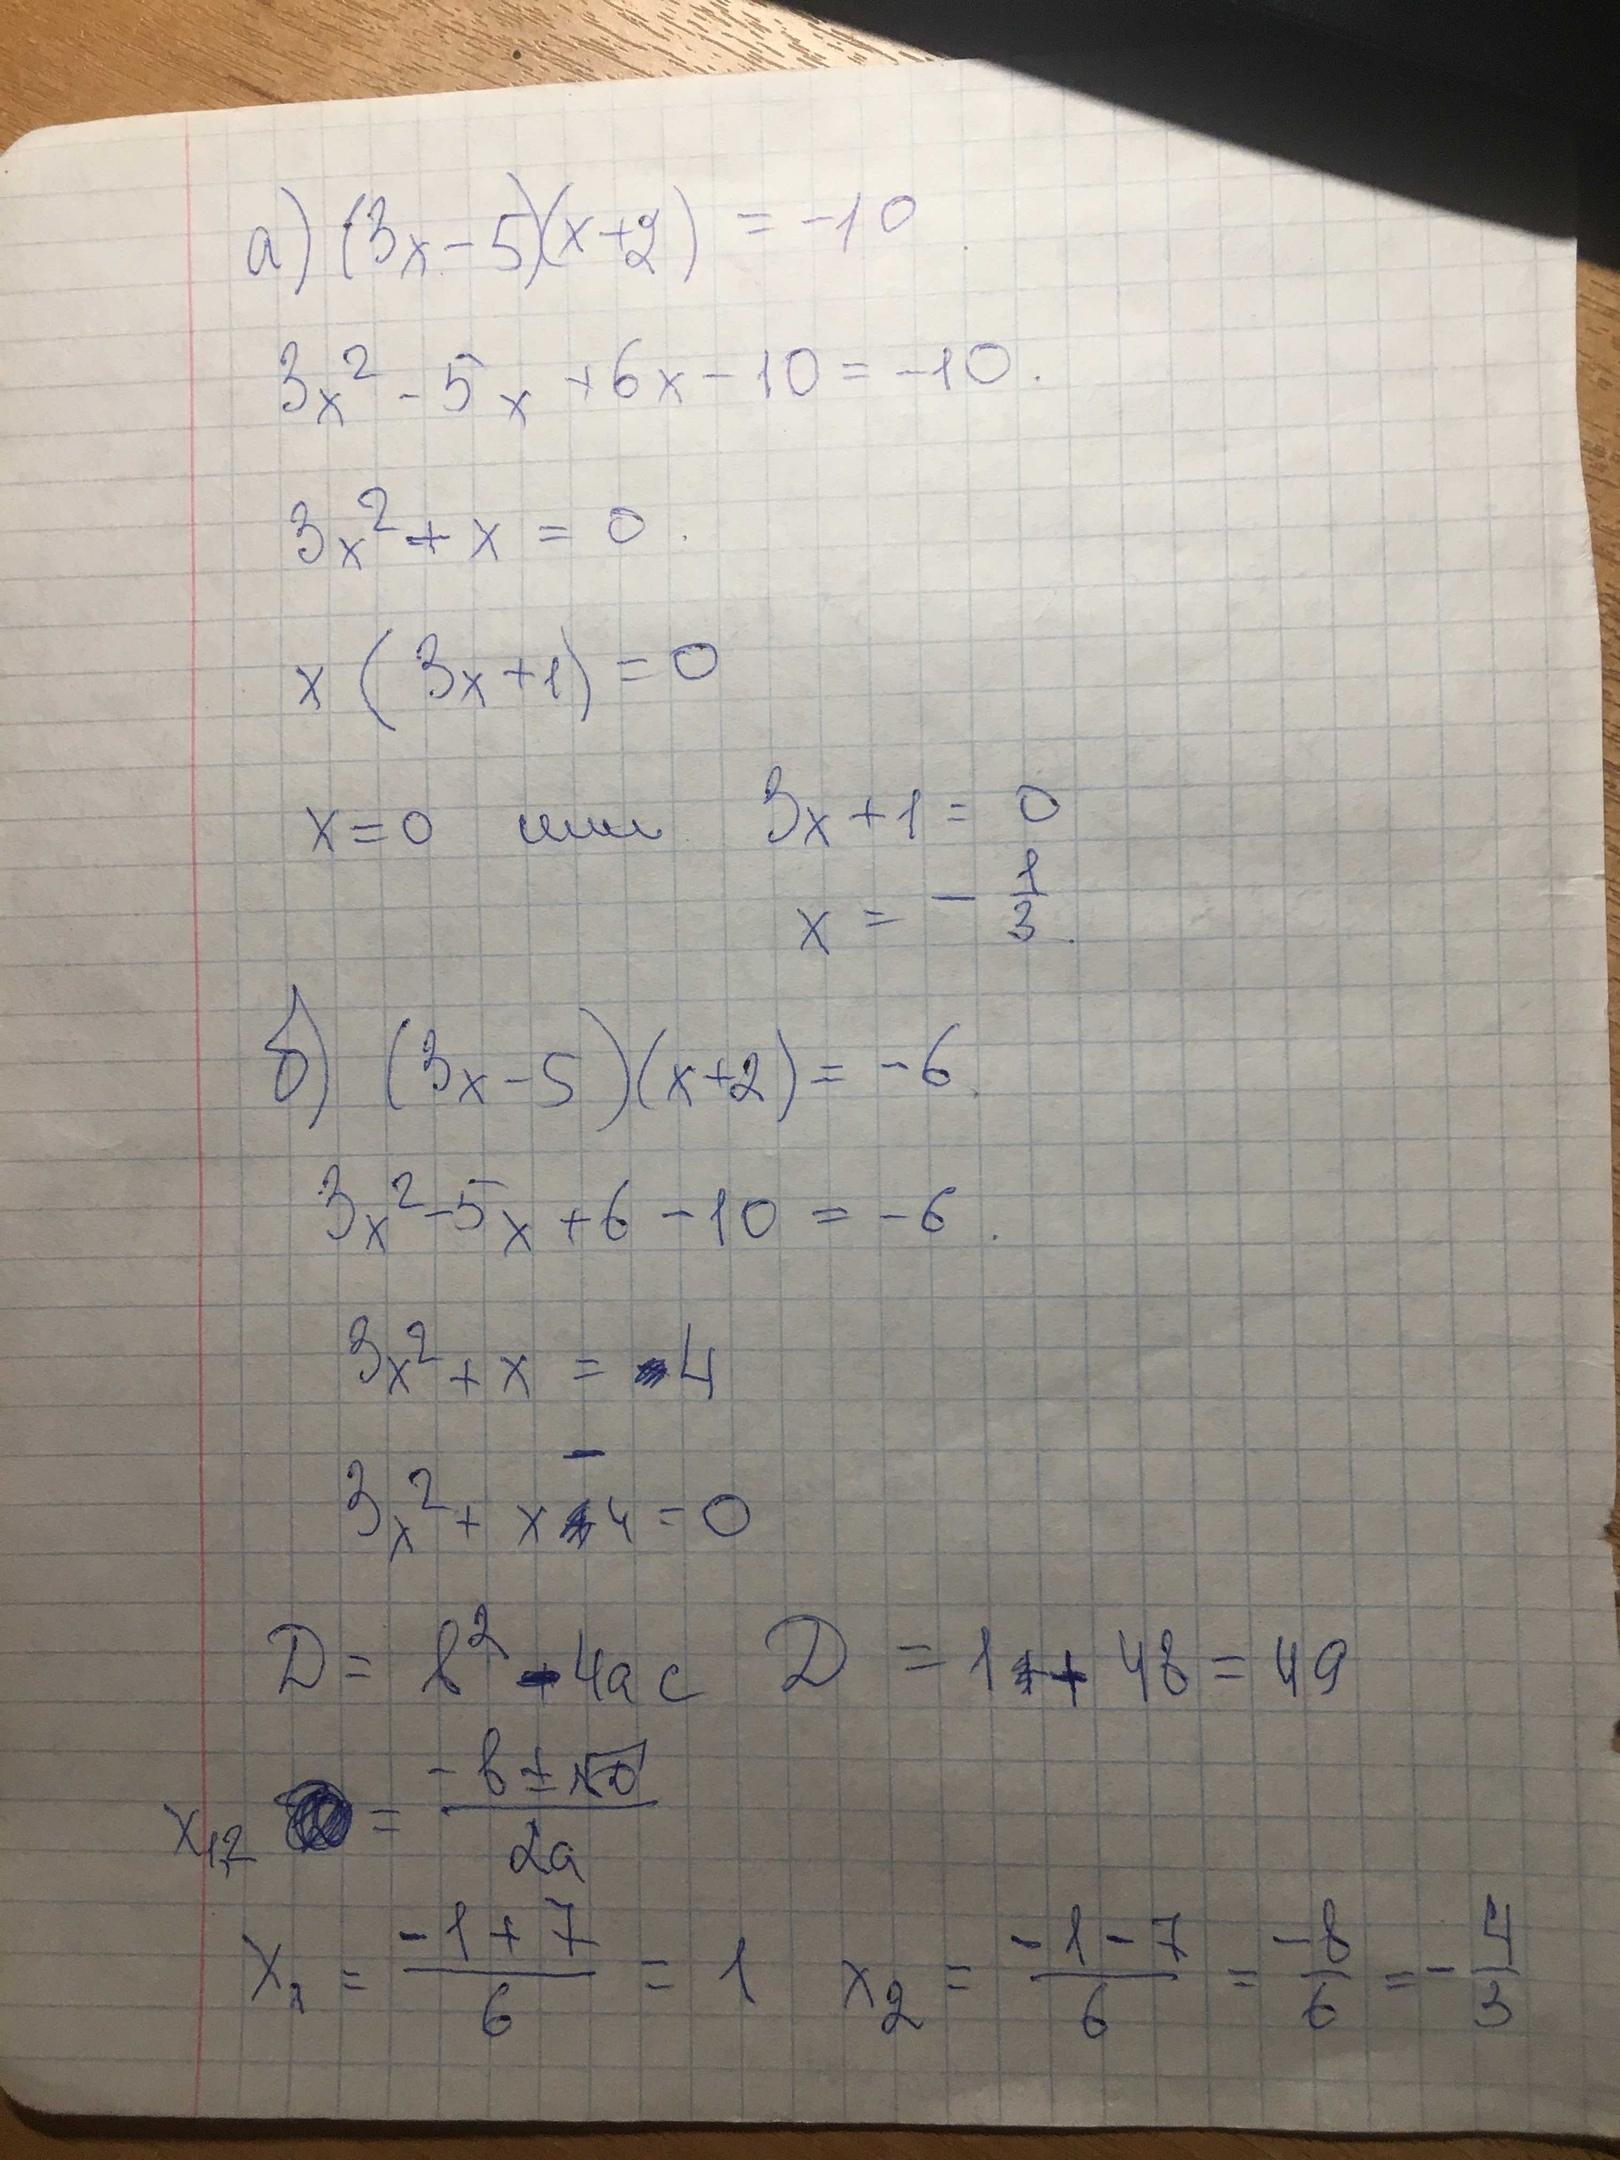 а) (3x-5)(x+2) = -10
3x² - 5x + 6x - 10 = -10.
3x² + x = 0.
x (3x+1) = 0
x = 0 или 3x + 1 = 0
x = - 1/3.
б) (3x-5)(x+2) = -6.
3x² - 5x + 6 - 10 = -6.
3x² + x = 4
3x² + x - 4 = 0
D = b² - 4ac D = 1 + 48 = 49
x₁,₂ = (-b ± √D)/2a
x₁ = (-1+7)/6 = 1 x₂ = (-1-7)/6 = -8/6 = - 4/3